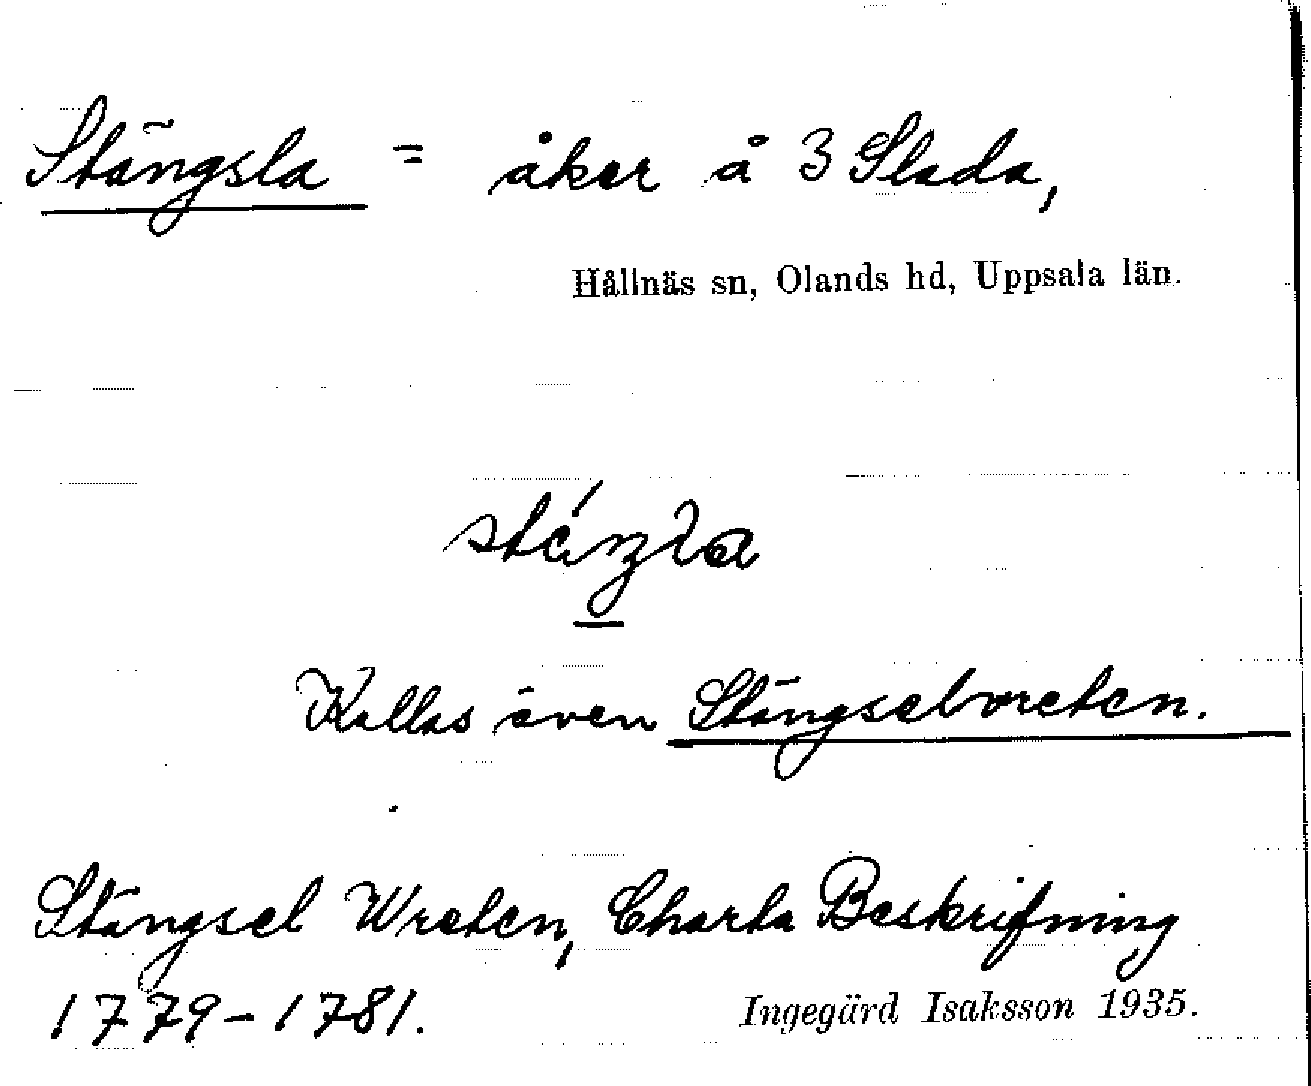 Stängsla = åker å 3 Slada,
Hållnäs sn, Olands hd, Uppsala län.
Kallas även Stängselvreten.
Stängsel Wreten, Charta Beskrifning
1779-1781.
Ingegärd Isaksson 1935.